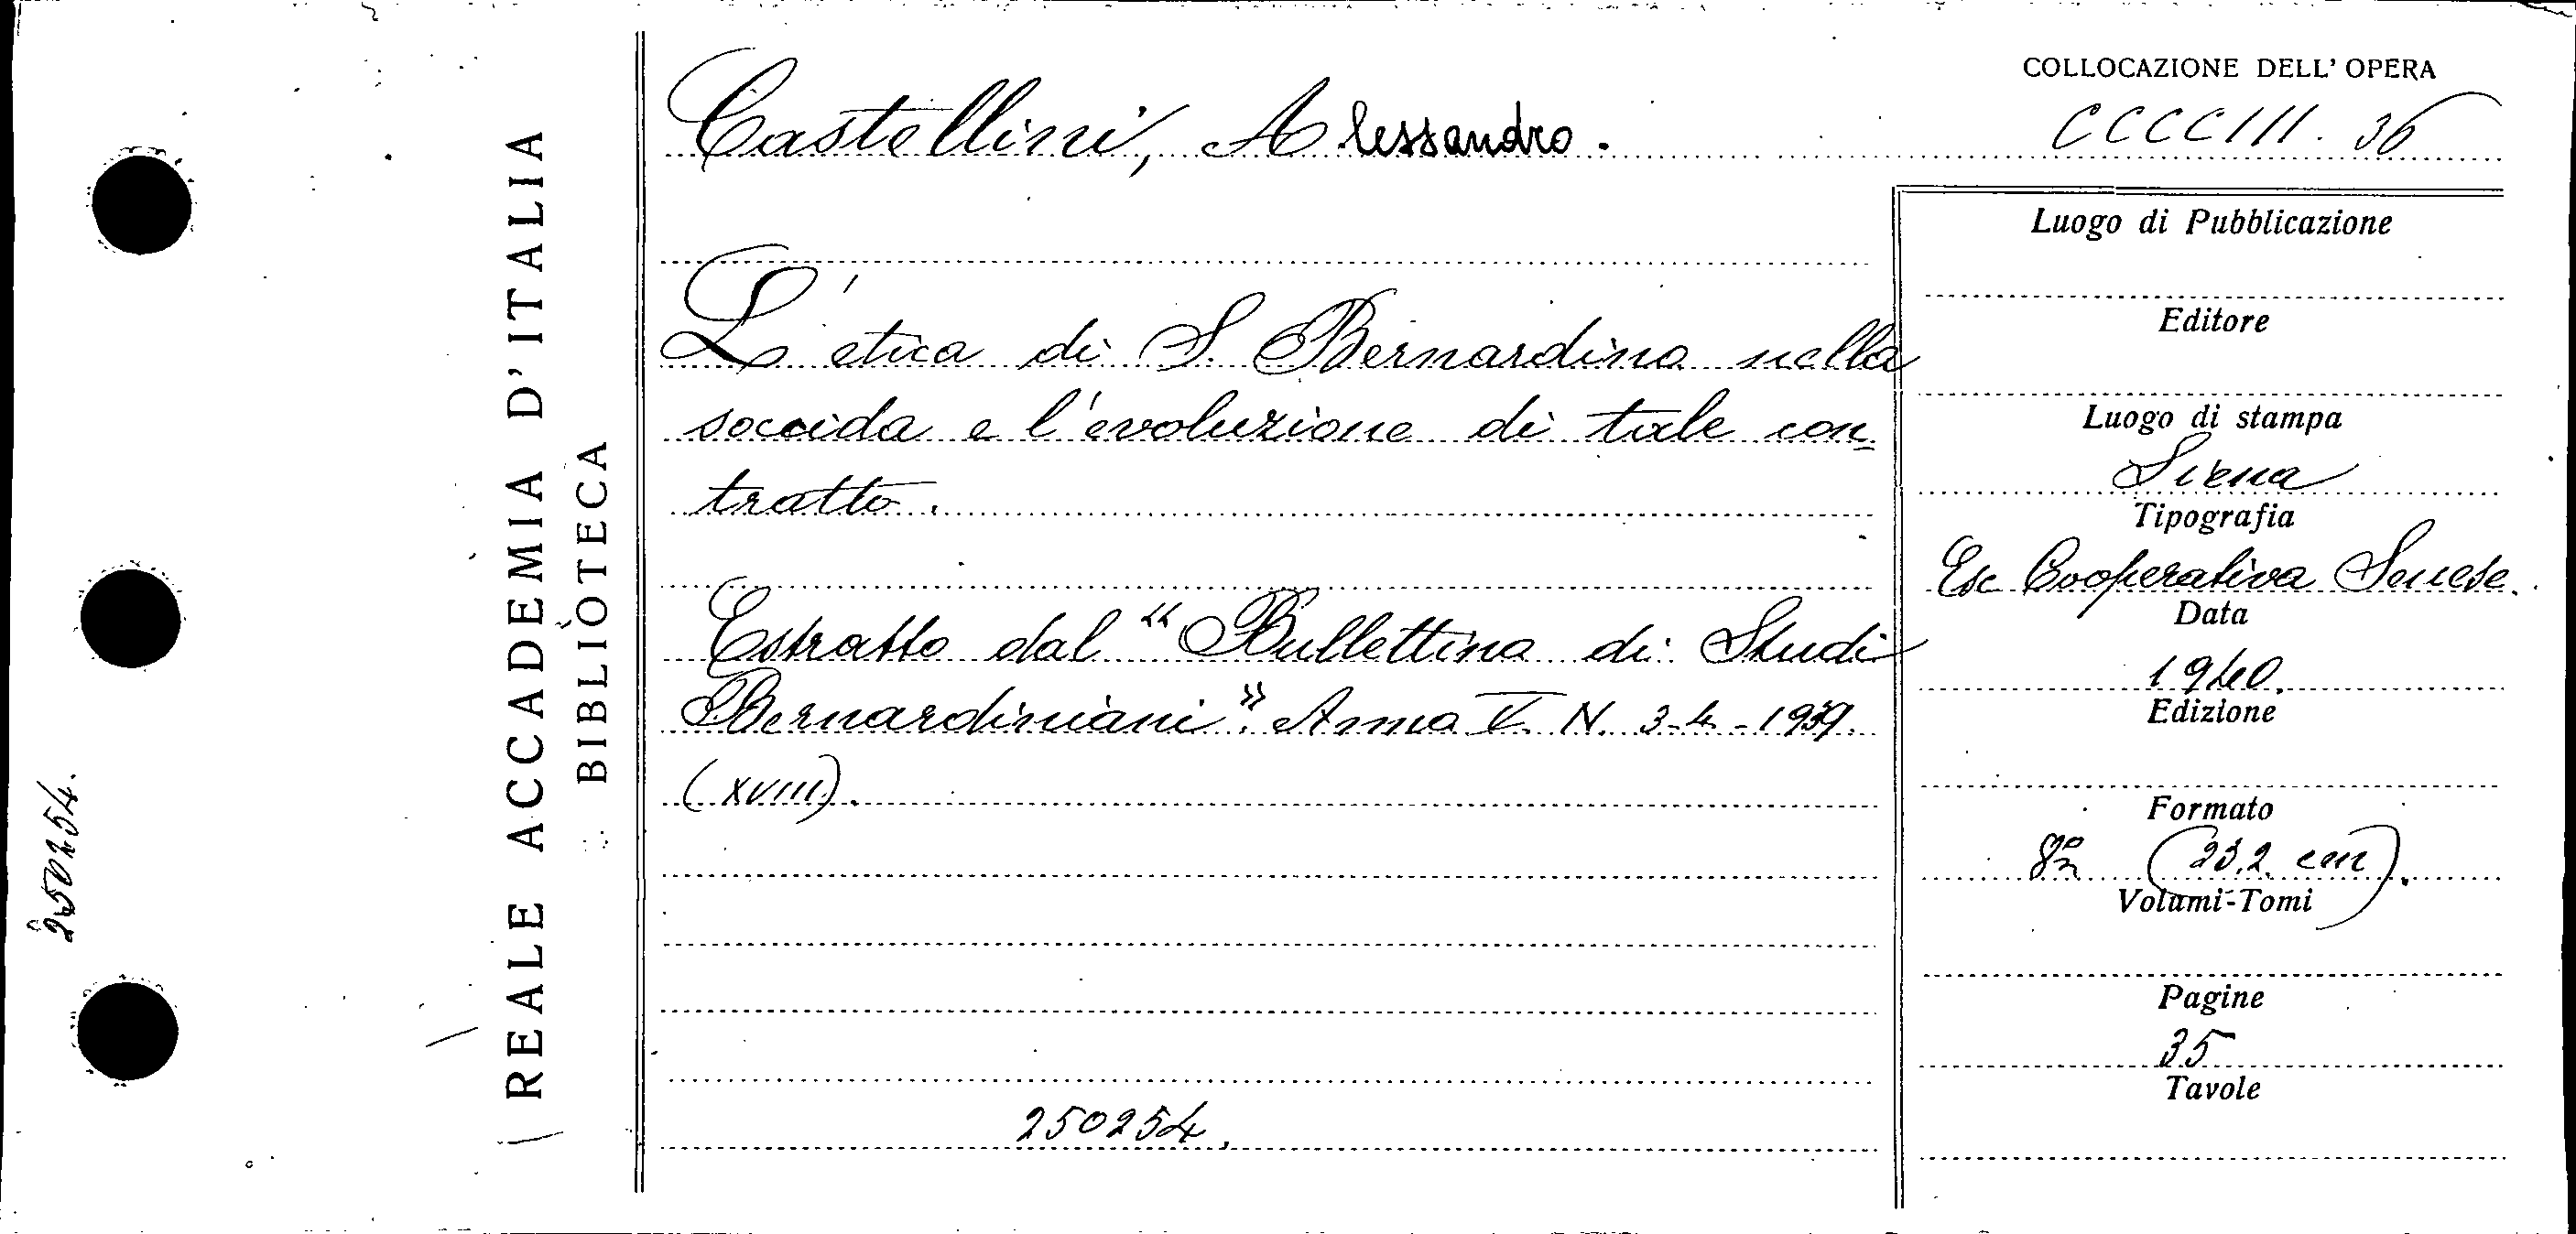 REALE ACCADEMIA D'ITALIA
BIBLIOTECA
250254.
Castellini, Alessandro.
L'etica di S. Bernardino nella
soccida e l'evoluzione di tale con=
tratto.
Estratto dal "Bullettino di Studi
Bernardiniani". Anno V. N. 3-4-1939.
(XVIII).
250254.
COLLOCAZIONE DELL'OPERA
CCCCIII. 36
Luogo di Pubblicazione
Editore
Luogo di stampa
Siena
Tipografia
Ex Cooperativa Senese.
Data
1940.
Edizione
Formato
8º (23,2 cm).
Volumi-Tomi
Pagine
35
Tavole